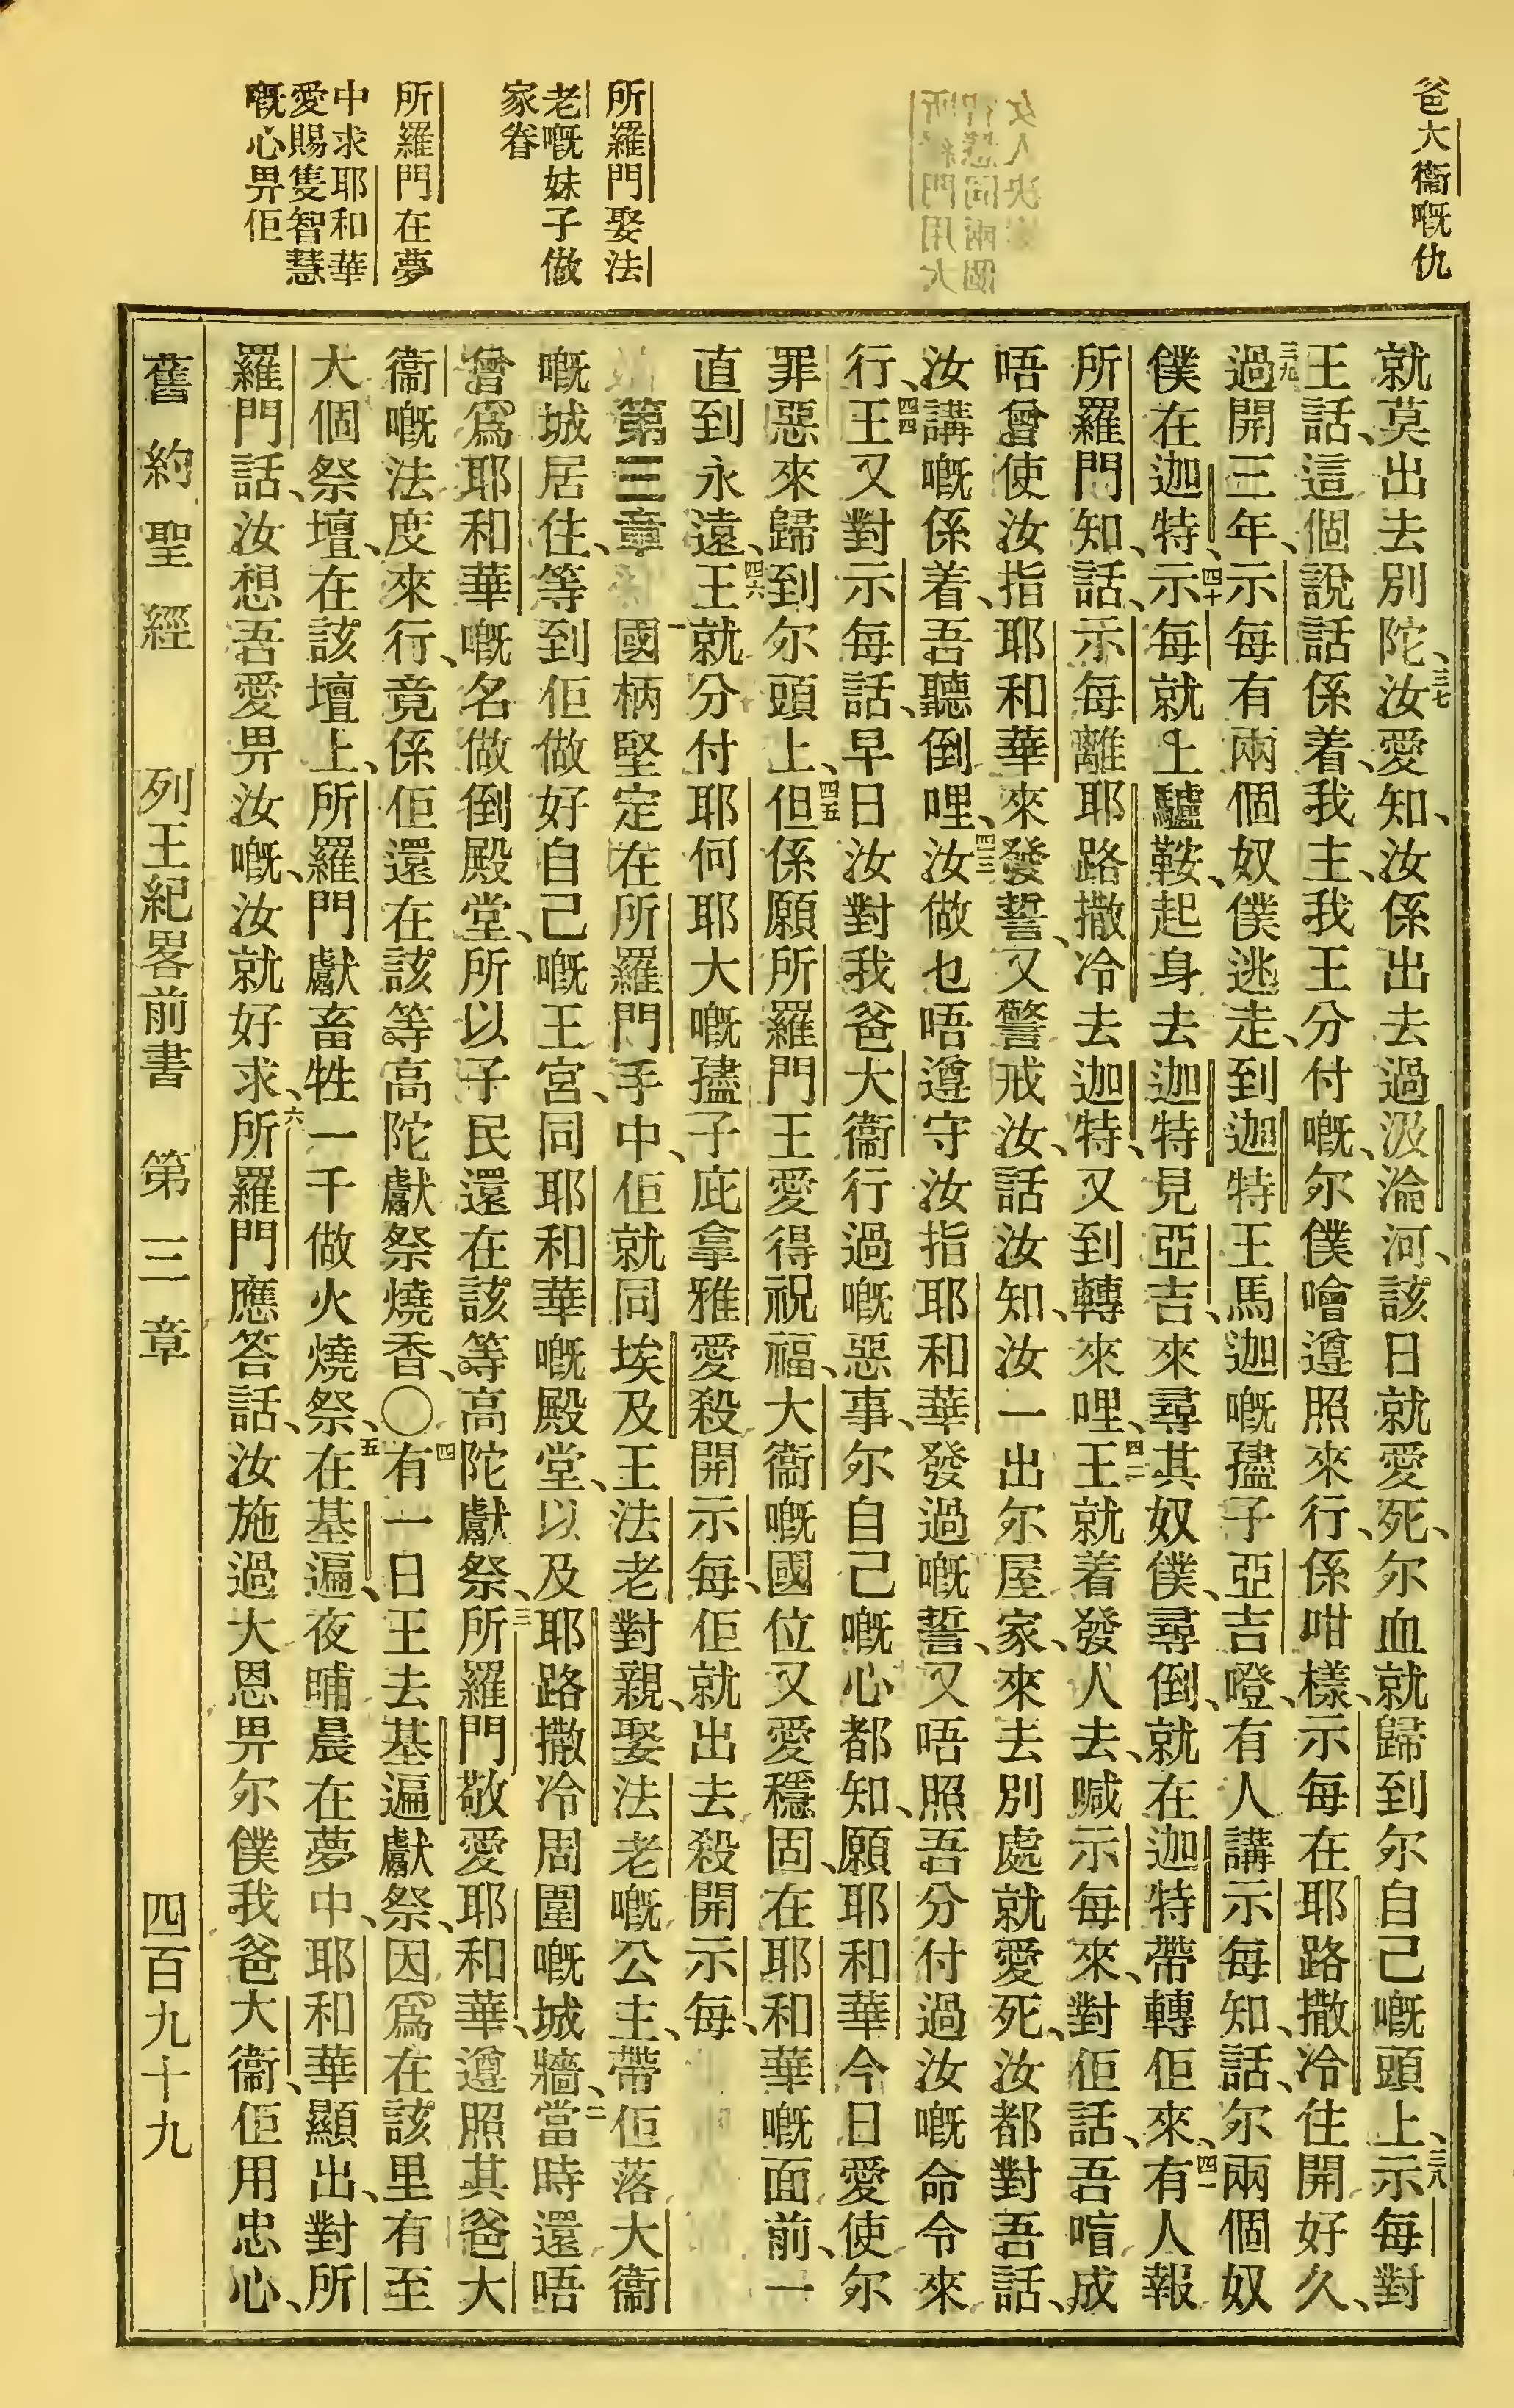 爸大衞嘅仇
所羅門娶法
老嘅妹子做
家眷
所羅門在夢
中求耶和華
愛賜隻智慧
嘅心畀佢
就莫出去別陀、三七汝愛知、汝係出去過汲淪河、該日就愛死、尔血就歸到尔自己嘅頭上、三八示每對
王話、這個說話係着、我主、我王分付嘅、尔僕噲遵照來行、係咁樣、示每在耶路撒冷住開好久、
三九過開三年、示每有兩個奴僕逃走、到迦特王馬迦嘅孻子亞吉嶝、有人講示每知、話、尔兩個奴
僕在迦特、四十示每就上驢鞍、起身去迦特見亞吉、來尋其奴僕、尋倒、就在迦特帶轉佢來、四一有人報
所羅門知、話、示每離耶路撒冷去迦特、又到轉來哩、四二王就着發人去、喊示每來、對佢話、吾喑成
唔曾使汝指耶和華來發誓、又警戒汝、話汝知、汝一出尔屋家、來去別處就愛死、汝都對吾話、
汝講嘅係着、吾聽倒哩、四三汝做乜唔遵守汝指耶和華發過嘅誓、又唔照吾分付過汝嘅命令來
行、四四王又對示每話、早日汝對我爸大衞行過嘅惡事、尔自己嘅心都知、願耶和華今日愛使尔
罪惡來歸到尔頭上、四五但係願所羅門王愛得祝福、大衞嘅國位又愛穩固、在耶和華嘅面前、一
直到永遠、四六王就分付耶何耶大嘅孻子庇拿雅愛殺開示每、佢就出去殺開示每、
第三章 一國柄堅定在所羅門手中、佢就同埃及王法老對親、娶法老嘅公主、帶佢落大衞
嘅城居住、等到佢做好自己嘅王宮、同耶和華嘅殿堂、以及耶路撒冷周圍嘅城牆、二當時還唔
曾爲耶和華嘅名做倒殿堂、所以子民還在該等高陀獻祭、三所羅門敬愛耶和華、遵照其爸大
衞嘅法度來行、竟係佢還在該等高陀獻祭燒香、〇四有一日王去基遍獻祭、因爲在該里有至
大個祭壇、在該壇上、所羅門獻畜牲一千做火燒祭、五在基遍、夜晡晨在夢中、耶和華顯出、對所
羅門話、汝想吾愛畀汝嘅、汝就好求、六所羅門應答話、汝施過大恩畀尔僕我爸大衞、佢用忠心、
舊約聖經　列王紀畧前書　第三章　四百九十九